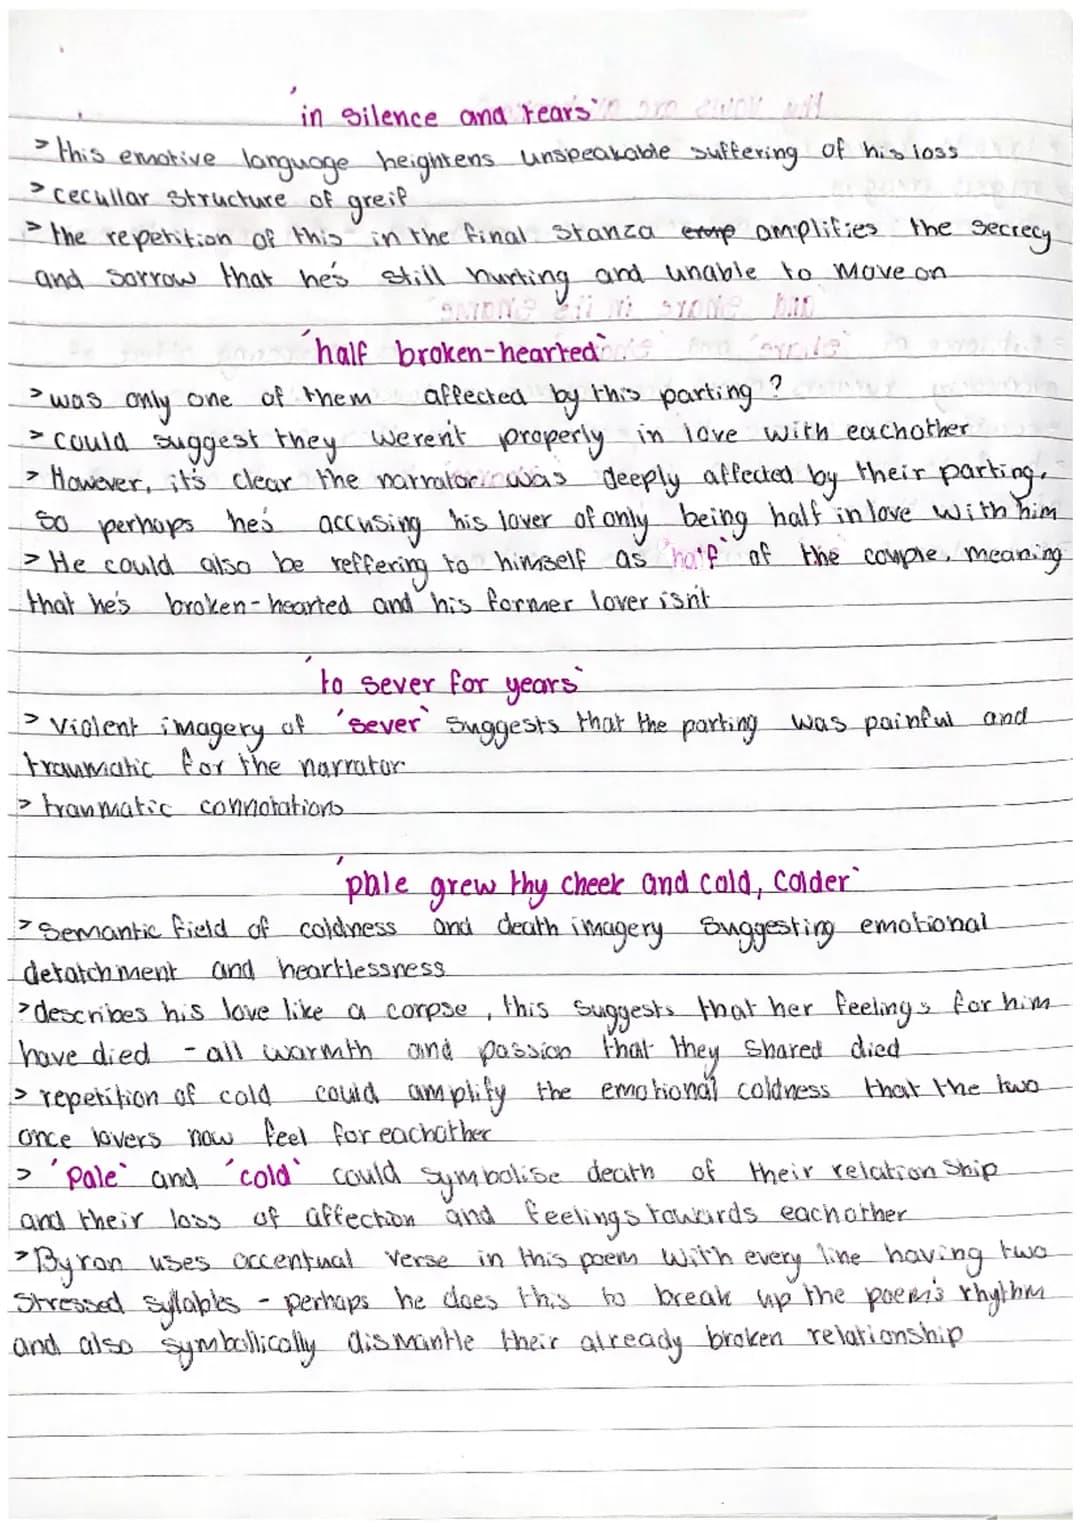 'in silence and tears'
> this emotive language heightens unspeakable suffering of his loss
> cecullar structure of greif
> the repetition of this in the final stanza amplifies the secrecy
and sorrow that he's still hurting and unable to move on
'half broken-hearted'
> was only one of them affected by this parting?
> could suggest they weren't properly in love with eachother
> However, it's clear the narrator was deeply affected by their parting,
so perhaps he's accusing his lover of only being half in love with him
> He could also be reffering to himself as 'half' of the couple, meaning
that he's broken-hearted and his former lover isn't
'to sever for years'
> violent imagery of 'sever' suggests that the parting was painful and
traumatic for the narrator
> tranmatic connotations
'pale grew thy cheek and cold, Colder'
> Semantic field of coldness and death imagery suggesting emotional
detatchment and heartlessness
> describes his love like a corpse, this suggests that her feelings for him
have died - all warmth and passion that they shared died
> repetition of cold could amplify the emotional coldness that the two
once lovers now feel for eachother
> 'Pale' and 'cold' could symbolise death of their relationship
and their loss of affection and feelings towards eachother
> Byron uses accentual verse in this poem with every line having two
stressed syllables - perhaps he does this to break up the poem's rhythm
and also symbollically dismantle their already broken relationship